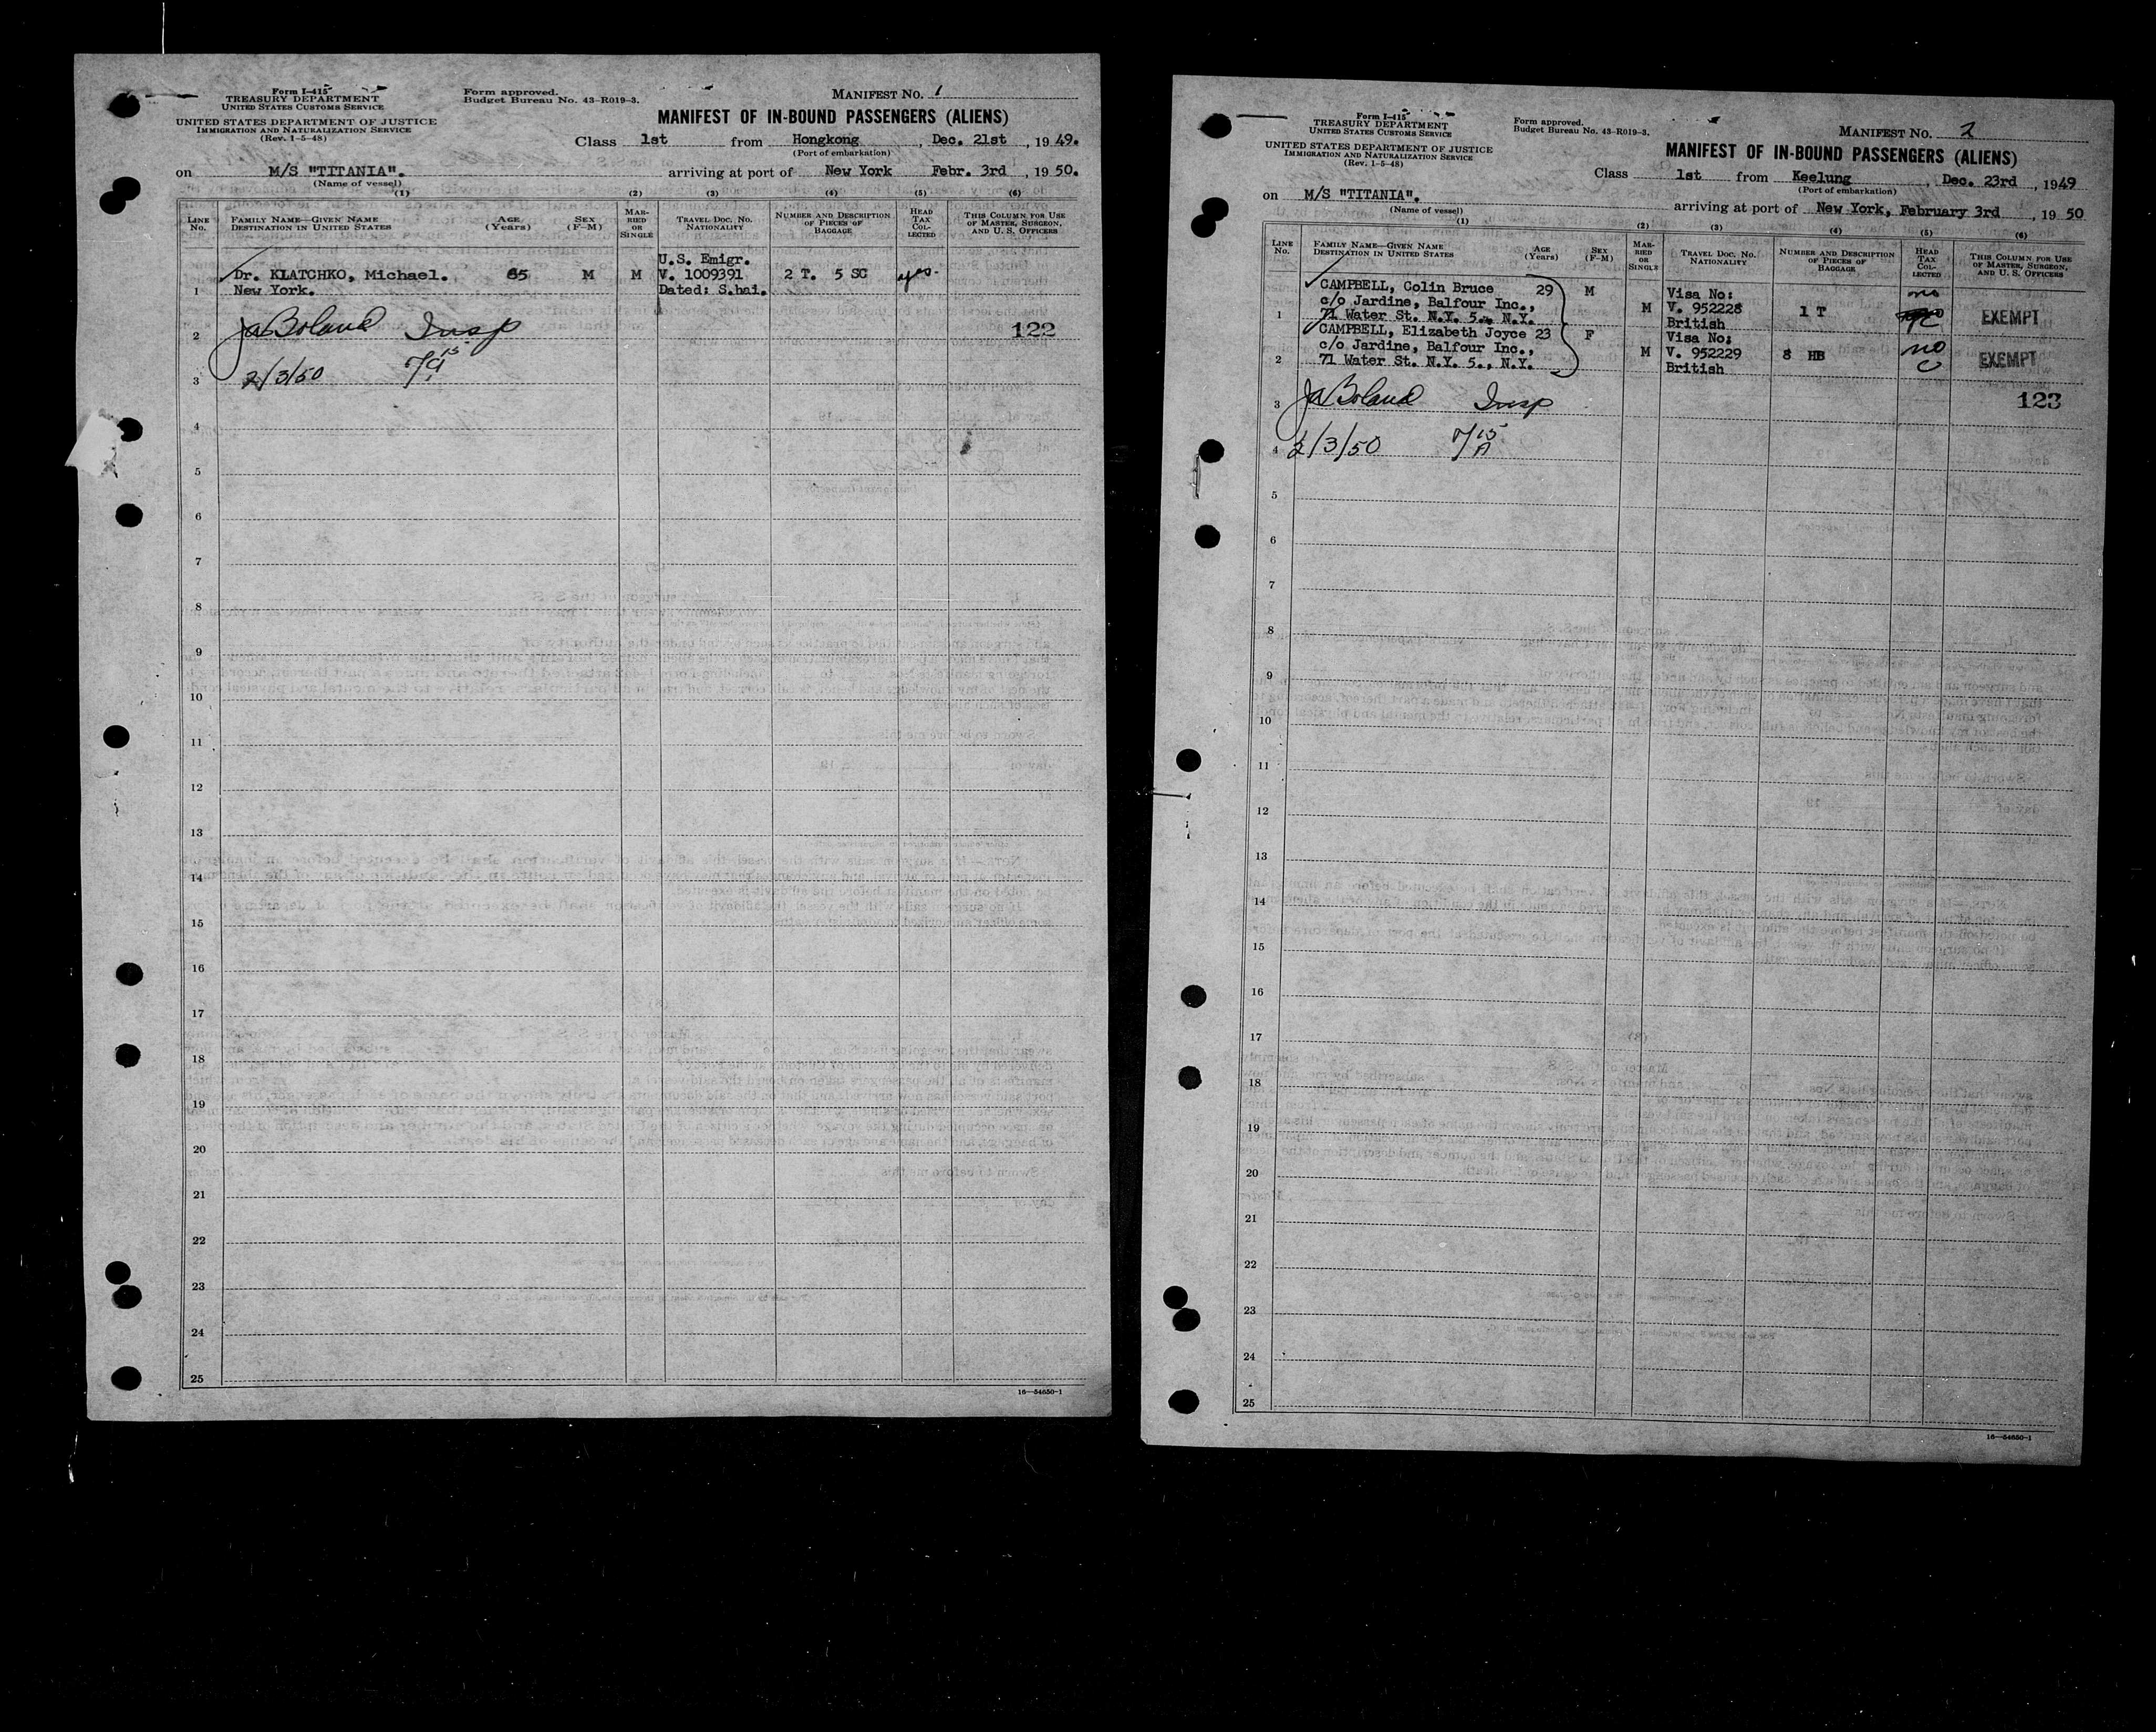 Form I-415
TREASURY DEPARTMENT
UNITED STATES CUSTOMS SERVICE
UNITED STATES DEPARTMENT OF JUSTICE
IMMIGRATION AND NATURALIZATION SERVICE
(Rev. 1-5-48)
Form approved.
Budget Bureau No. 43-R019-3.
MANIFEST NO. 1
MANIFEST OF IN-BOUND PASSENGERS (ALIENS)
Class 1st from Hongkong, Dec. 21st, 1949.
(Port of embarkation)
on M/S "TITANIA". arriving at port of New York Febr. 3rd, 1950.
(Name of vessel)
(1) (2) (3) (4) (5) (6)
LINE No. FAMILY NAME—GIVEN NAME DESTINATION IN UNITED STATES AGE (Years) SEX (F-M) MARRIED OR SINGLE TRAVEL DOC. NO. NATIONALITY NUMBER AND DESCRIPTION OF PIECES OF BAGGAGE HEAD TAX COLLECTED THIS COLUMN FOR USE OF MASTER, SURGEON, AND U. S. OFFICERS
U.S. Emigr.
Dr. KLATCHKO, Michael. 65 M M V. 1009391 2 T. 5 SC yes.
1 New York. Dated: S.hai.
2 JA Boland Insp 122
3 2/3/50
4
5
6
7
8
9
10
11
12
13
14
15
16
17
18
19
20
21
22
23
24
25
16—54650-1
Form I-415
TREASURY DEPARTMENT
UNITED STATES CUSTOMS SERVICE
UNITED STATES DEPARTMENT OF JUSTICE
IMMIGRATION AND NATURALIZATION SERVICE
(Rev. 1-5-48)
Form approved.
Budget Bureau No. 43-R019-3.
MANIFEST NO. 2
MANIFEST OF IN-BOUND PASSENGERS (ALIENS)
Class 1st from Keelung, Dec. 23rd, 1949
(Port of embarkation)
on M/S "TITANIA". arriving at port of New York, February 3rd, 1950
(Name of vessel)
(1) (2) (3) (4) (5) (6)
LINE No. FAMILY NAME—GIVEN NAME DESTINATION IN UNITED STATES AGE (Years) SEX (F-M) MARRIED OR SINGLE TRAVEL DOC. NO. NATIONALITY NUMBER AND DESCRIPTION OF PIECES OF BAGGAGE HEAD TAX COLLECTED THIS COLUMN FOR USE OF MASTER, SURGEON, AND U. S. OFFICERS
CAMPBELL, Colin Bruce 29 M Visa No: no
c/o Jardine, Balfour Inc., M V. 952228 1 T EXEMPT
1 71 Water St. N.Y. 5., N.Y. British
CAMPBELL, Elizabeth Joyce 23 F Visa No:
c/o Jardine, Balfour Inc., M V. 952229 8 HB no EXEMPT
2 71 Water St. N.Y. 5., N.Y. British C
3 JA Boland Insp 123
4 2/3/50 7/15 A
5
6
7
8
9
10
11
12
13
14
15
16
17
18
19
20
21
22
23
24
25
16—54650-1